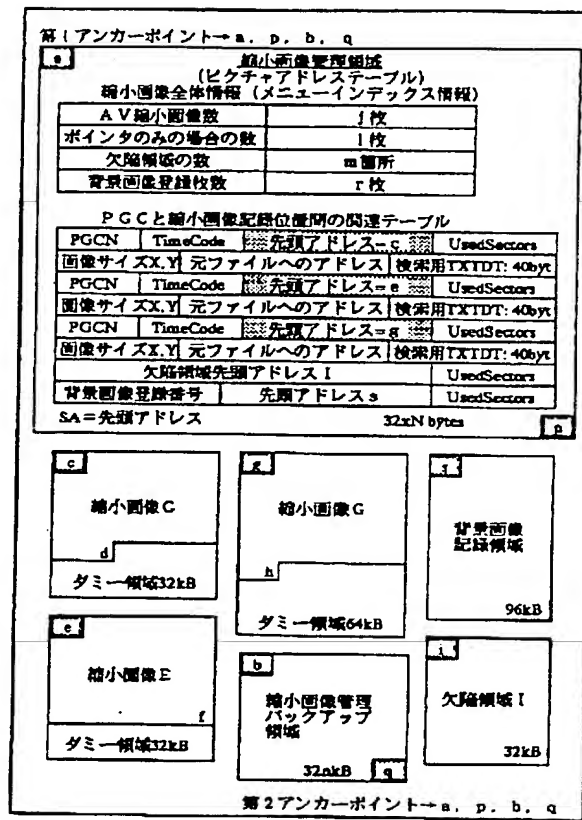 第1アンカーポイント→a, p, b, q
a
縮小画像管理領域
(ピクチャアドレステーブル)
縮小画像全体情報 (メニューインデックス情報)
AV縮小画像数 j枚
ポインタのみの場合の数 l枚
欠陥領域の数 m箇所
背景画像登録枚数 r枚
PGCと縮小画像記録位置間の関連テーブル
PGCN TimeCode 先頭アドレス=c UsedSectors
画像サイズX,Y 元ファイルへのアドレス 検索用TXTDT: 40byt
PGCN TimeCode 先頭アドレス=e UsedSectors
画像サイズX,Y 元ファイルへのアドレス 検索用TXTDT: 40byt
PGCN TimeCode 先頭アドレス=g UsedSectors
画像サイズX,Y 元ファイルへのアドレス 検索用TXTDT: 40byt
欠陥領域先頭アドレスI UsedSectors
背景画像登録番号 先頭アドレスs UsedSectors
SA=先頭アドレス 32xN bytes
p
c
縮小画像G
d
ダミー領域32kB
g
縮小画像G
h
ダミー領域64kB
背景画像
記録領域
96kB
e
縮小画像E
f
ダミー領域32kB
b
縮小画像管理
バックアップ
領域
32nkB
q
i
欠陥領域I
32kB
第2アンカーポイント→a, p, b, q